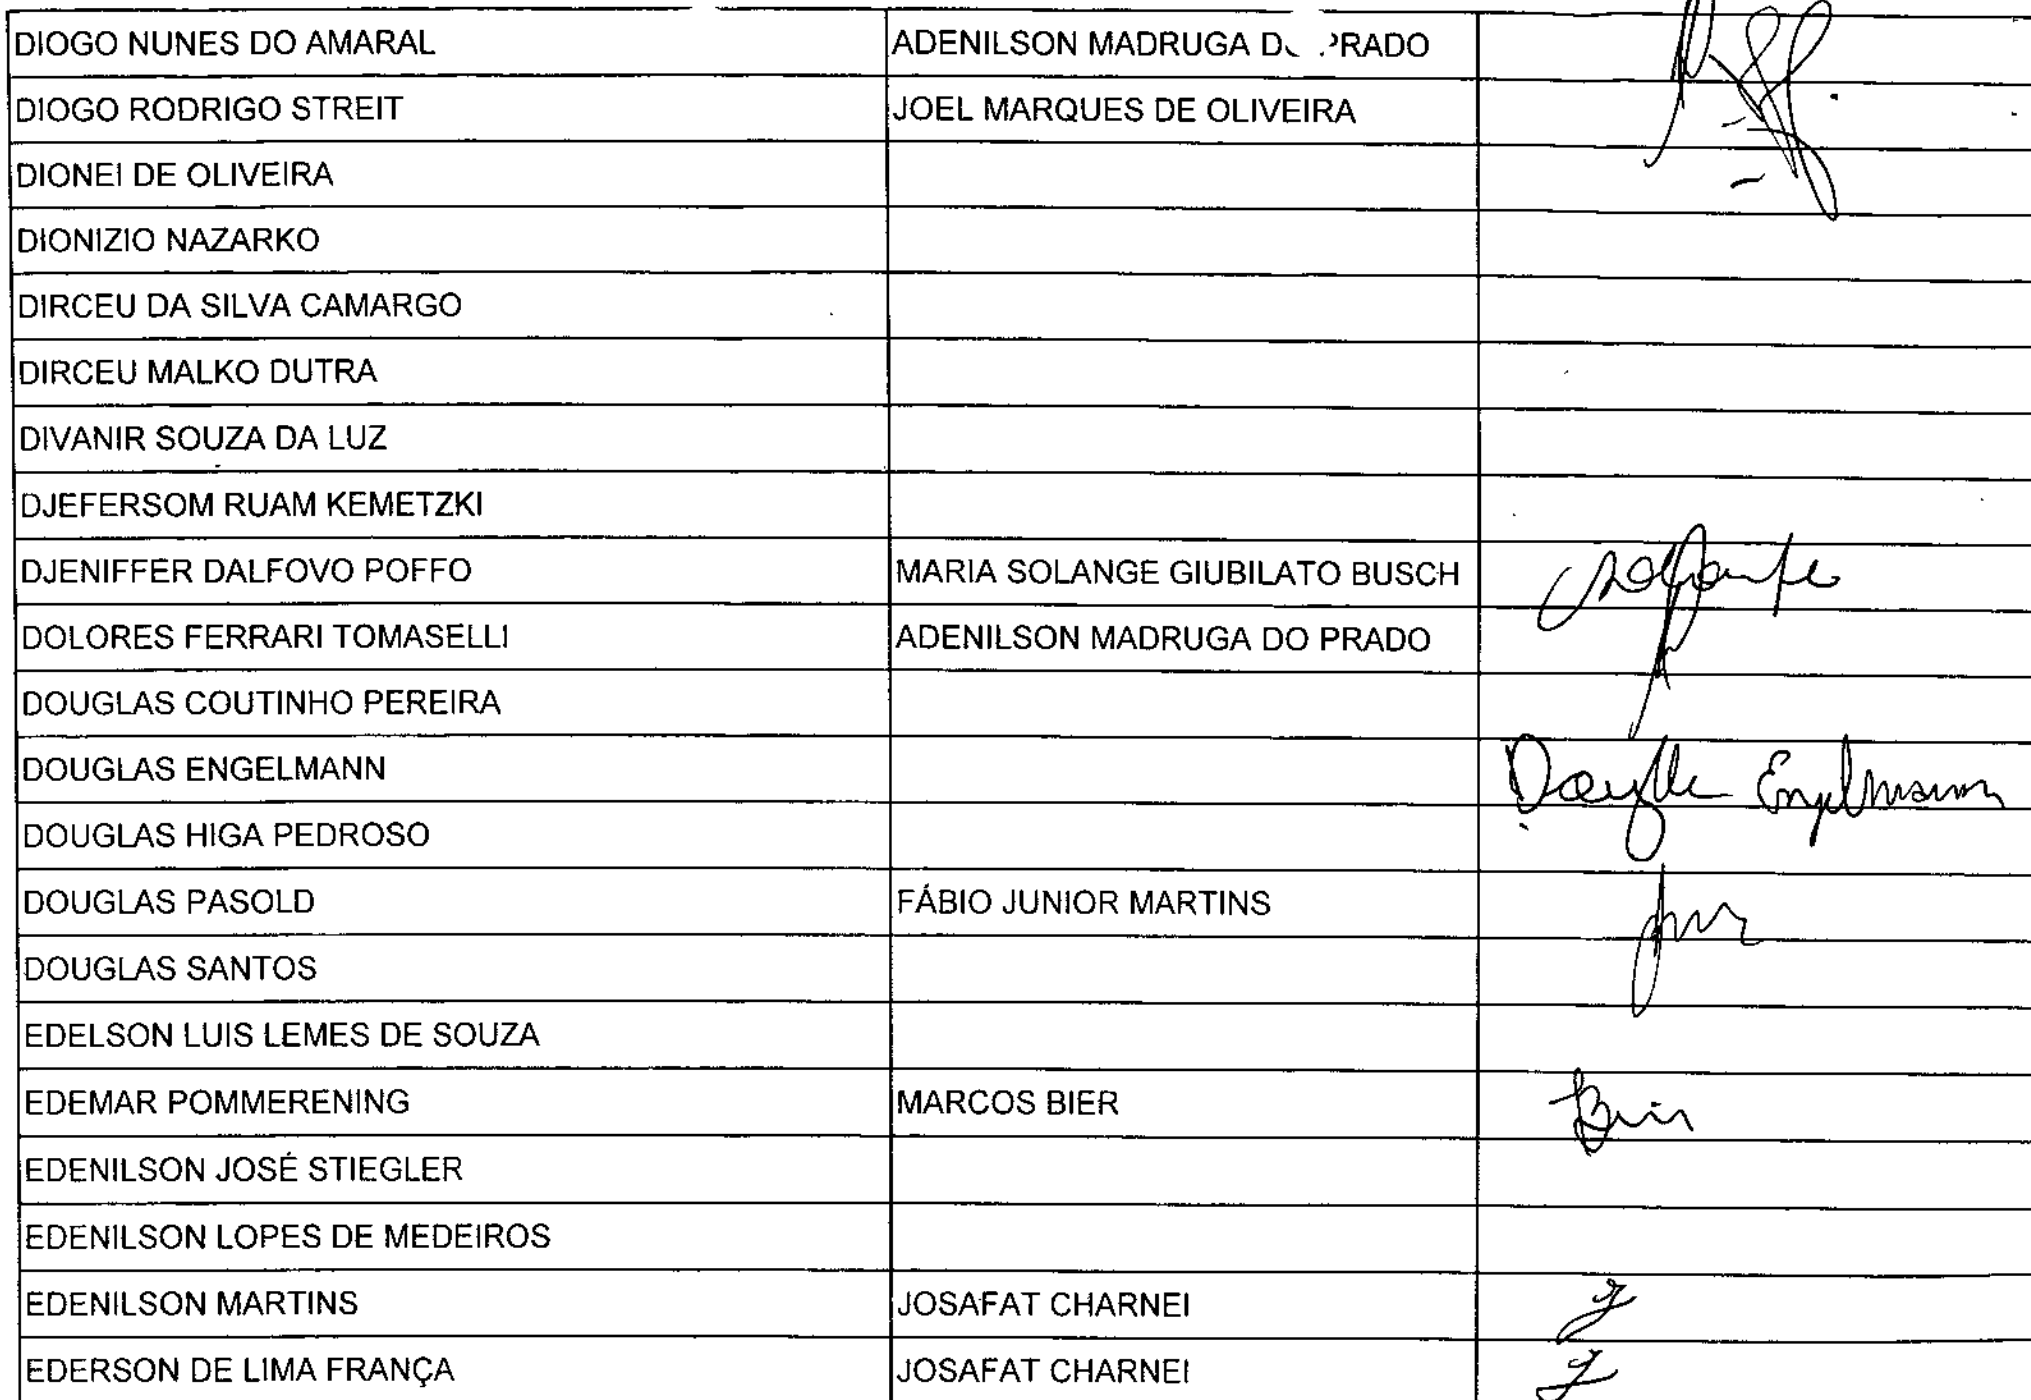 DIOGO NUNES DO AMARAL ADENILSON MADRUGA PRADO
DIOGO RODRIGO STREIT JOEL MARQUES DE OLIVEIRA
DIONEI DE OLIVEIRA
DIONIZIO NAZARKO
DIRCEU DA SILVA CAMARGO
DIRCEU MALKO DUTRA
DIVANIR SOUZA DA LUZ
DJEFERSOM RUAM KEMETZKI
DJENIFFER DALFOVO POFFO MARIA SOLANGE GIUBILATO BUSCH
DOLORES FERRARI TOMASELLI ADENILSON MADRUGA DO PRADO
DOUGLAS COUTINHO PEREIRA
DOUGLAS ENGELMANN Engelmann
DOUGLAS HIGA PEDROSO
DOUGLAS PASOLD FÁBIO JUNIOR MARTINS
DOUGLAS SANTOS
EDELSON LUIS LEMES DE SOUZA
EDEMAR POMMERENING MARCOS BIER
EDENILSON JOSÉ STIEGLER
EDENILSON LOPES DE MEDEIROS
EDENILSON MARTINS JOSAFAT CHARNEI
EDERSON DE LIMA FRANÇA JOSAFAT CHARNEI